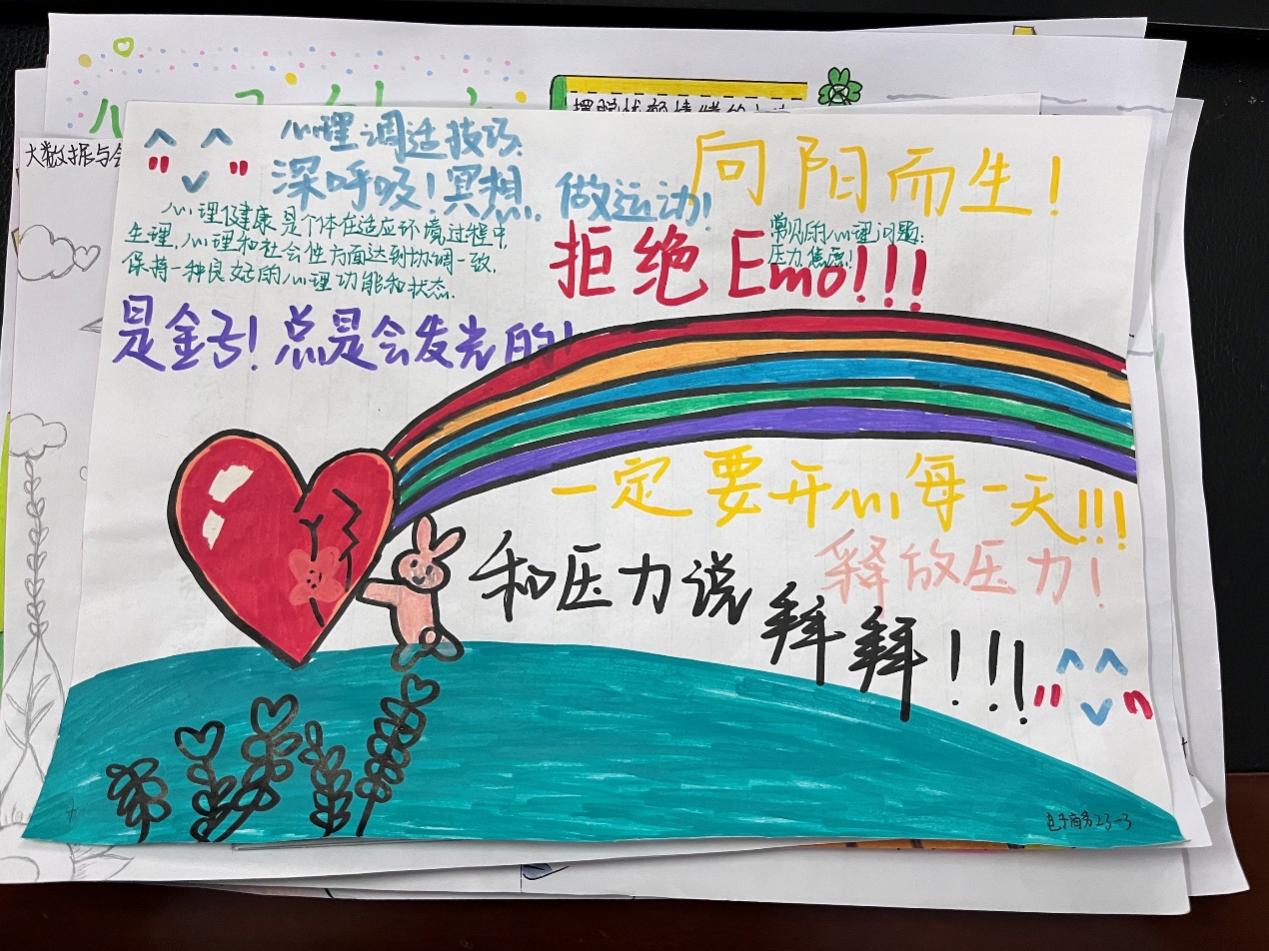 大数据与会
心理调适技巧
深呼吸！冥想。做运动！
向阳而生！
心理健康是个体在适应环境过程中，
生理，心理和社会性方面达到协调一致，
保持一种良好的心理功能和状态.
常见的心理问题：
压力，焦虑！
拒绝Emo!!!
是金子！总是会发光的！
一定要开心每一天!!!
释放压力！
和压力说
拜拜!!!
电子商务23-3